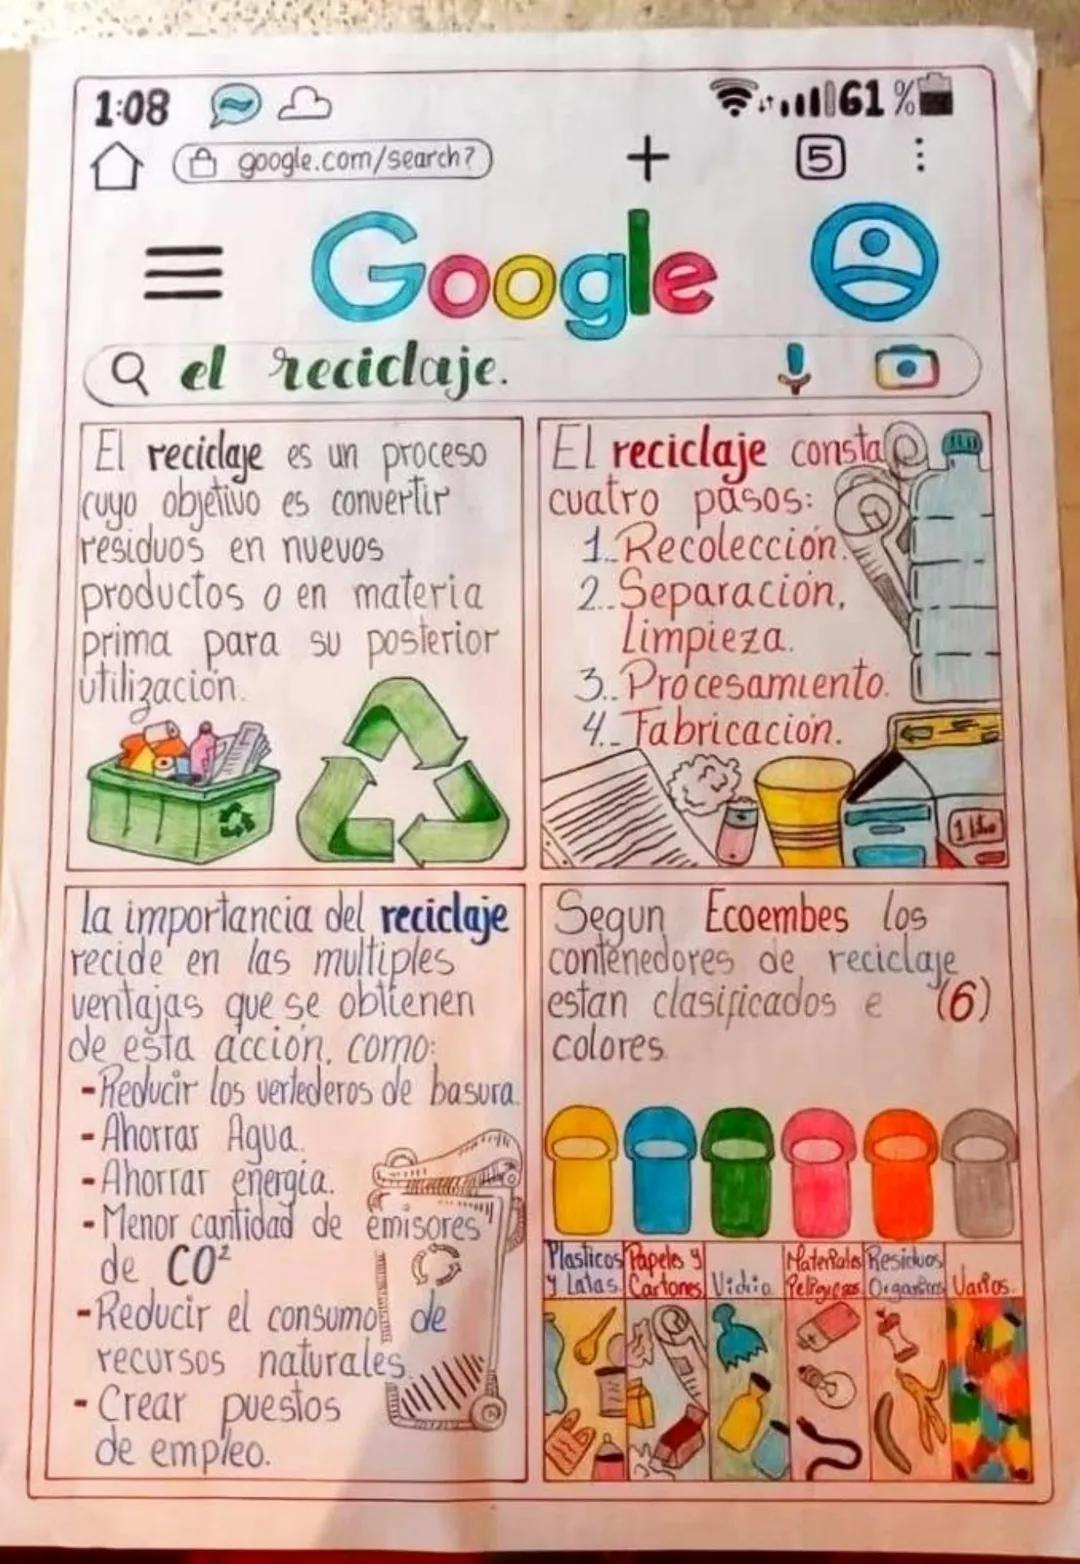 1:08
61 %
google.com/search?
+
5
Google
el reciclaje.
El reciclaje es un proceso
cuyo objetivo es convertir
residuos en nuevos
productos o en materia
prima para su posterior
utilización.
El reciclaje consta
cuatro pasos:
1.. Recolección.
2.. Separación,
Limpieza.
3.. Procesamiento.
4.. Fabricación.
1 litro
La importancia del reciclaje
recide en las multiples
ventajas que se obtienen
de esta acción, como:
- Reducir los vertederos de basura.
- Ahorrar Agua.
- Ahorrar energia.
- Menor cantidad de emisores
de CO²
- Reducir el consumo de
recursos naturales.
- Crear puestos
de empleo.
Segun Ecoembes los
contenedores de reciclaje
estan clasificados e (6)
colores.
Plasticos
y Latas.
Papeles y
Cartones
Vidrio
Materiales
Peligrosos
Residuos
Organicos
Varios.